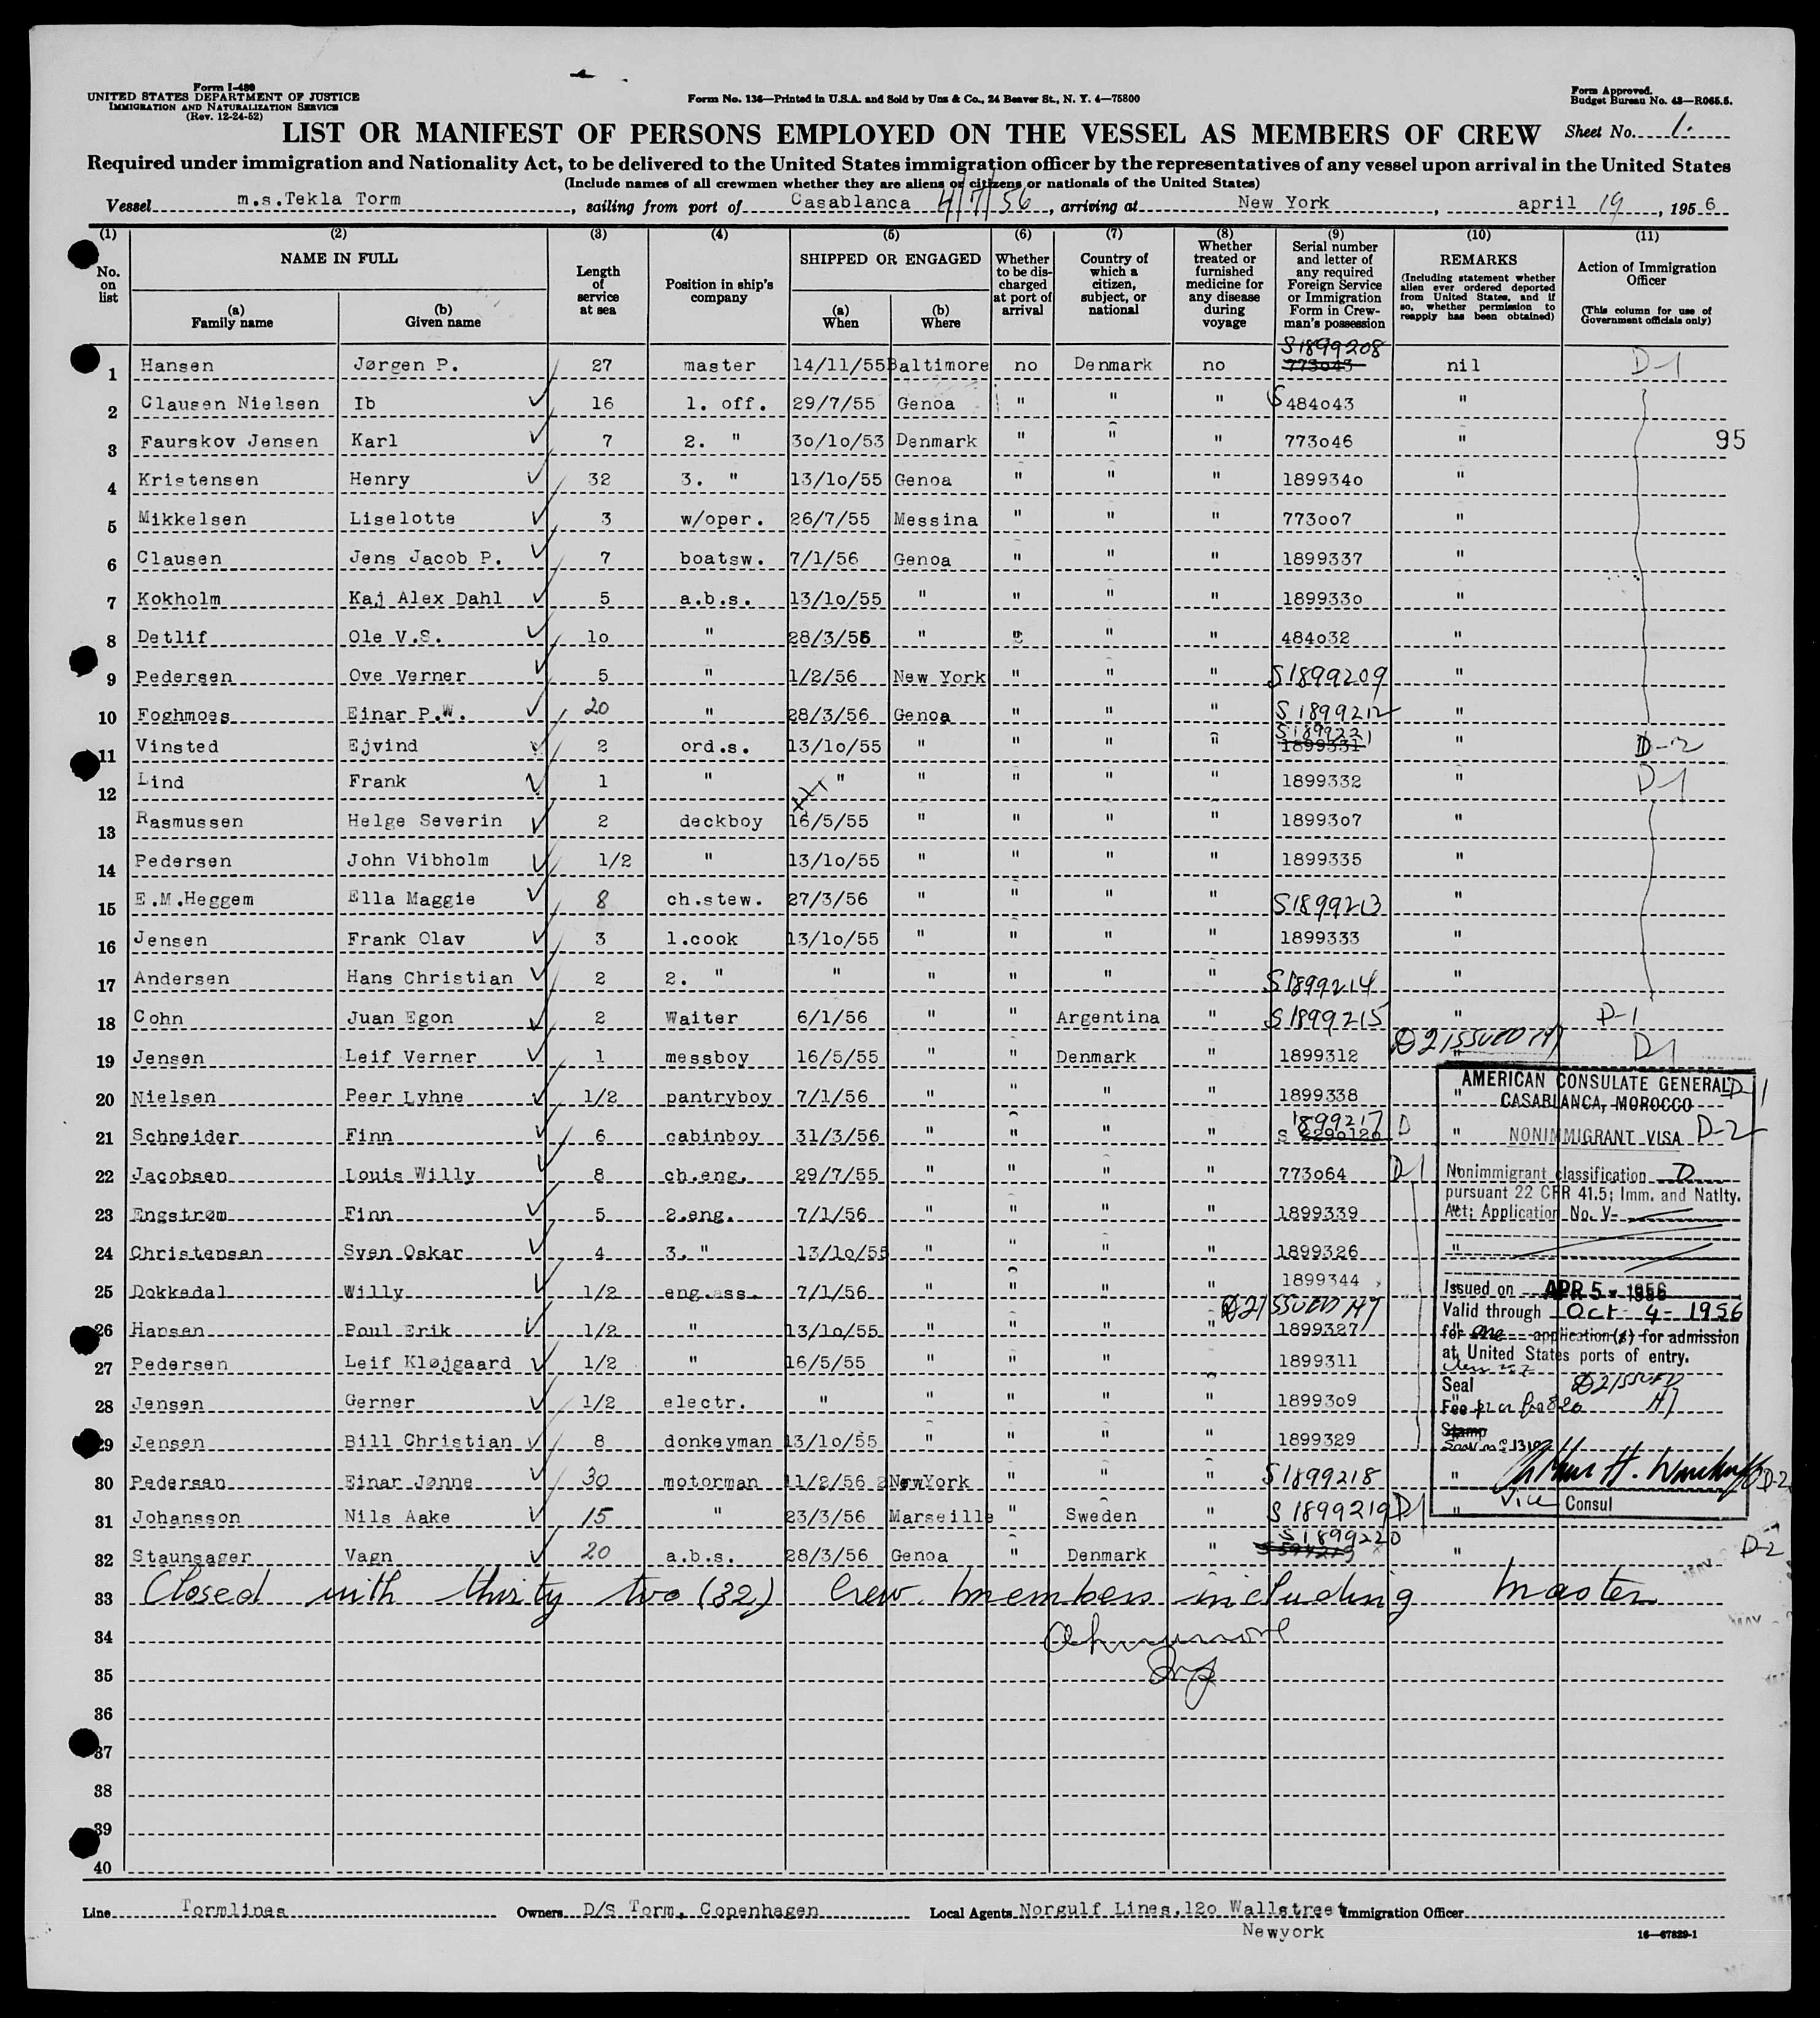 Form I-480
UNITED STATES DEPARTMENT OF JUSTICE
IMMIGRATION AND NATURALIZATION SERVICE
(Rev. 12-24-52)
Form No. 136—Printed in U.S.A. and Sold by Unz & Co., 24 Beaver St., N. Y. 4—75800
Form Approved.
Budget Bureau No. 43—R065.5.
LIST OR MANIFEST OF PERSONS EMPLOYED ON THE VESSEL AS MEMBERS OF CREW Sheet No. 1.
Required under immigration and Nationality Act, to be delivered to the United States immigration officer by the representatives of any vessel upon arrival in the United States
(Include names of all crewmen whether they are aliens or citizens or nationals of the United States)
Vessel m.s.Tekla Torm, sailing from port of Casablanca 4/7/56, arriving at New York, april 19, 1956
(1) (2) (3) (4) (5) (6) (7) (8) (9) (10) (11)
No. on list
NAME IN FULL
(a) Family name
(b) Given name
Length of service at sea
Position in ship's company
SHIPPED OR ENGAGED
(a) When
(b) Where
Whether to be discharged at port of arrival
Country of which a citizen, subject, or national
Whether treated or furnished medicine for any disease during voyage
Serial number and letter of any required Foreign Service or Immigration Form in Crewman's possession
REMARKS
(Including statement whether alien ever ordered deported from United States, and if so, whether permission to reapply has been obtained)
Action of Immigration Officer
(This column for use of Government officials only)
1 Hansen Jørgen P. 27 master 14/11/55 Baltimore no Denmark no 773043 S1899208 nil D-1
2 Clausen Nielsen Ib 16 1. off. 29/7/55 Genoa " " " S484o43 "
3 Faurskov Jensen Karl 7 2. " 3o/1o/53 Denmark " " " 773o46 " 95
4 Kristensen Henry 32 3. " 13/1o/55 Genoa " " " 189934o "
5 Mikkelsen Liselotte 3 w/oper. 26/7/55 Messina " " " 773oo7 "
6 Clausen Jens Jacob P. 7 boatsw. 7/1/56 Genoa " " " 1899337 "
7 Kokholm Kaj Alex Dahl 5 a.b.s. 13/1o/55 " " " " 189933o "
8 Detlif Ole V.S. 1o " 28/3/56 " " " " 484o32 "
9 Pedersen Ove Verner 5 " 1/2/56 New York " " " S1899209 "
10 Foghmoes Einar P.W. 20 " 28/3/56 Genoa " " " S 1899212 "
11 Vinsted Ejvind 2 ord.s. 13/1o/55 " " " " 1899331 S1899221 " D-2
12 Lind Frank 1 " " " " " " 1899332 " D-1
13 Rasmussen Helge Severin 2 deckboy 16/5/55 " " " " 18993o7 "
14 Pedersen John Vibholm 1/2 " 13/1o/55 " " " " 1899335 "
15 E.M.Heggem Ella Maggie 8 ch.stew. 27/3/56 " " " " S1899213 "
16 Jensen Frank Olav 3 1.cook 13/1o/55 " " " " 1899333 "
17 Andersen Hans Christian 2 2. " " " " " " S1899214 "
18 Cohn Juan Egon 2 Waiter 6/1/56 " " Argentina " S1899215 " D-1
19 Jensen Leif Verner 1 messboy 16/5/55 " " Denmark " 1899312 D2 ISSUED " D1
20 Nielsen Peer Lyhne 1/2 pantryboy 7/1/56 " " " " 1899338 " D-1
21 Schneider Finn 6 cabinboy 31/3/56 " " " " 1899217 D " D-2
22 Jacobsen Louis Willy 8 ch.eng. 29/7/55 " " " " 773o64 D1 "
23 Engstrøm Finn 5 2.eng. 7/1/56 " " " " 1899339 "
24 Christensen Sven Oskar 4 3. " 13/1o/55 " " " " 1899326 "
25 Dokkedal Willy 1/2 eng.ass. 7/1/56 " " " " 1899344
D2 ISSUED
26 Hansen Poul Erik 1/2 " 13/1o/55 " " " 1899327 "
27 Pedersen Leif Kløjgaard 1/2 " 16/5/55 " " " 1899311
28 Jensen Gerner 1/2 electr. " " " " " 18993o9 "
29 Jensen Bill Christian 8 donkeyman 13/1o/55 " " " " 1899329
30 Pedersen Einar Jønne 30 motorman 11/2/56 NewYork " " " S1899218 " D-2
31 Johansson Nils Aake 15 " 23/3/56 Marseille " Sweden " S 1899219 D1 "
32 Staunsager Vagn 20 a.b.s. 28/3/56 Genoa " Denmark " S1899220 " D-2
AMERICAN CONSULATE GENERAL
CASABLANCA, MOROCCO
NONIMMIGRANT VISA
Nonimmigrant classification D
pursuant 22 CFR 41.5; Imm. and Natlty.
Act; Application No. V-
Issued on APR 5 - 1956
Valid through Oct - 4 - 1956
for one application(s) for admission
at United States ports of entry.
Seal D2 ISSUED
Fee
Stamp
Vice Consul
33 Closed with thirty two (32) crew members including master
34
35
36
37
38
39
40
Line Tormlines Owners D/S Torm, Copenhagen Local Agents Norgulf Lines,12o Wallstreet Immigration Officer
Newyork
16—67829-1